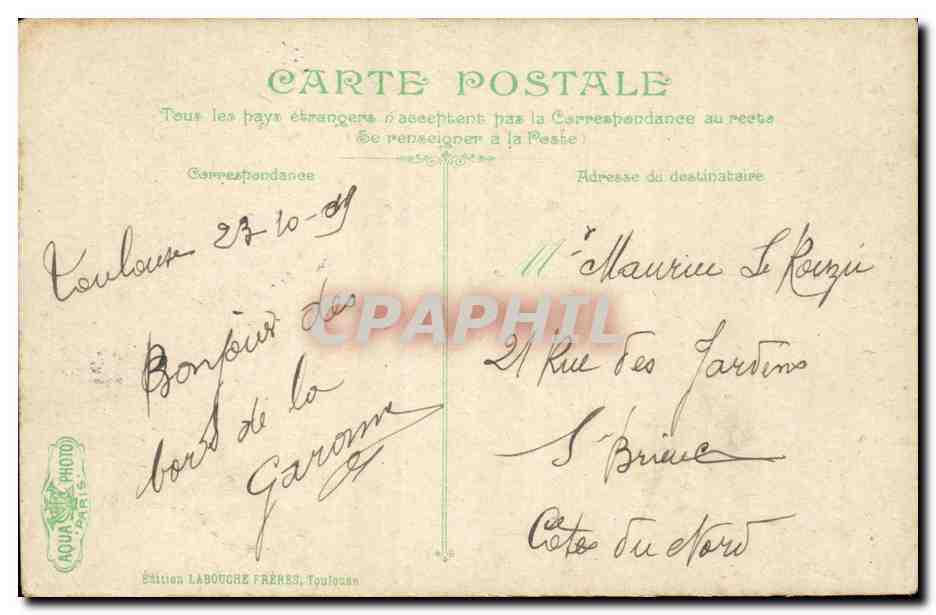 CARTE POSTALE
Tous les pays étrangers n'acceptent pas la Correspondance au recto
(Se renseigner à la Poste)
Correspondance
Adresse du destinataire
Toulouse 23-10-
Bonjour des
bors de la
Garonne
Mr Maurice Le
21 Rue des Jardins
St Brieuc
Côtes du Nord
CPAPHIL
AQUA PHOTO
PARIS
Édition LABOUCHE FRÈRES, Toulouse